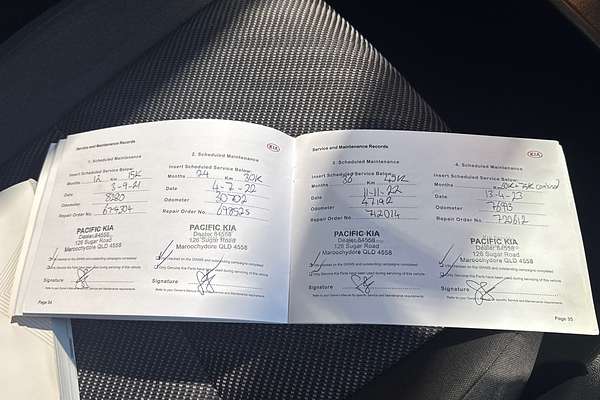 Service and Maintenance Records
KIA
1. Scheduled Maintenance
Insert Scheduled Service Below:
Months 12 Km 15K
Date 3-9-21
Odometer
Repair Order No.
PACIFIC KIA
Dealer 84558
126 Sugar Road
Maroochydore QLD 4558
Signature
Page 54
2. Scheduled Maintenance
Insert Scheduled Service Below:
Months 24 Km 30K
Date 4-7-22
Odometer 30702
Repair Order No. 698525
PACIFIC KIA
Dealer 84558
126 Sugar Road
Maroochydore QLD 4558
Only Genuine Kia Parts have been used during servicing of this vehicle
Signature
Service and Maintenance Records
KIA
3. Scheduled Maintenance
Insert Scheduled Service Below:
Months Km 45K
Date 11-11-22
Odometer
Repair Order No. 712014
PACIFIC KIA
Dealer 84558
126 Sugar Road
Maroochydore QLD 4558
Only Genuine Kia Parts have been used during servicing of this vehicle
Signature
4. Scheduled Maintenance
Insert Scheduled Service Below:
Months Km 60K + 75K combined
Date 13-4-23
Odometer
Repair Order No.
PACIFIC KIA
Dealer 84558
126 Sugar Road
Maroochydore QLD 4558
Signature
Page 55